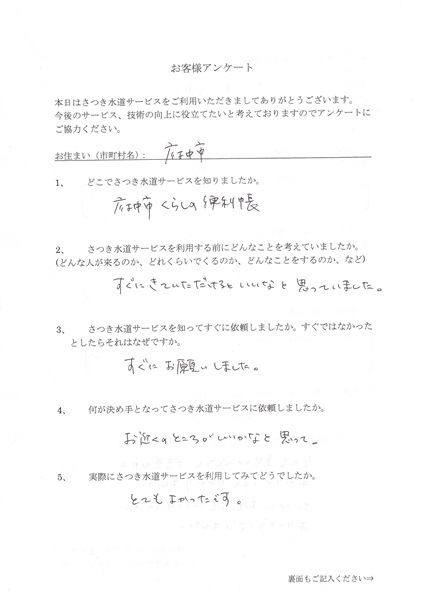 お客様アンケート
本日はさつき水道サービスをご利用いただきましてありがとうございます。
今後のサービス、技術の向上に役立てたいと考えておりますのでアンケートに
ご協力ください。
お住まい（市町村名）： 府中市
1、 どこでさつき水道サービスを知りましたか。
府中市 くらしの便利帳
2、 さつき水道サービスを利用する前にどんなことを考えていましたか。
(どんな人が来るのか、どれくらいでくるのか、どんなことをするのか、など)
すぐにきていただけるといいなと思っていました。
3、 さつき水道サービスを知ってすぐに依頼しましたか。すぐではなかった
としたらそれはなぜですか。
すぐにお願いしました。
4、 何が決め手となってさつき水道サービスに依頼しましたか。
お近くのところがいいかなと思って。
5、 実際にさつき水道サービスを利用してみてどうでしたか。
とてもよかったです。
裏面もご記入ください⇒